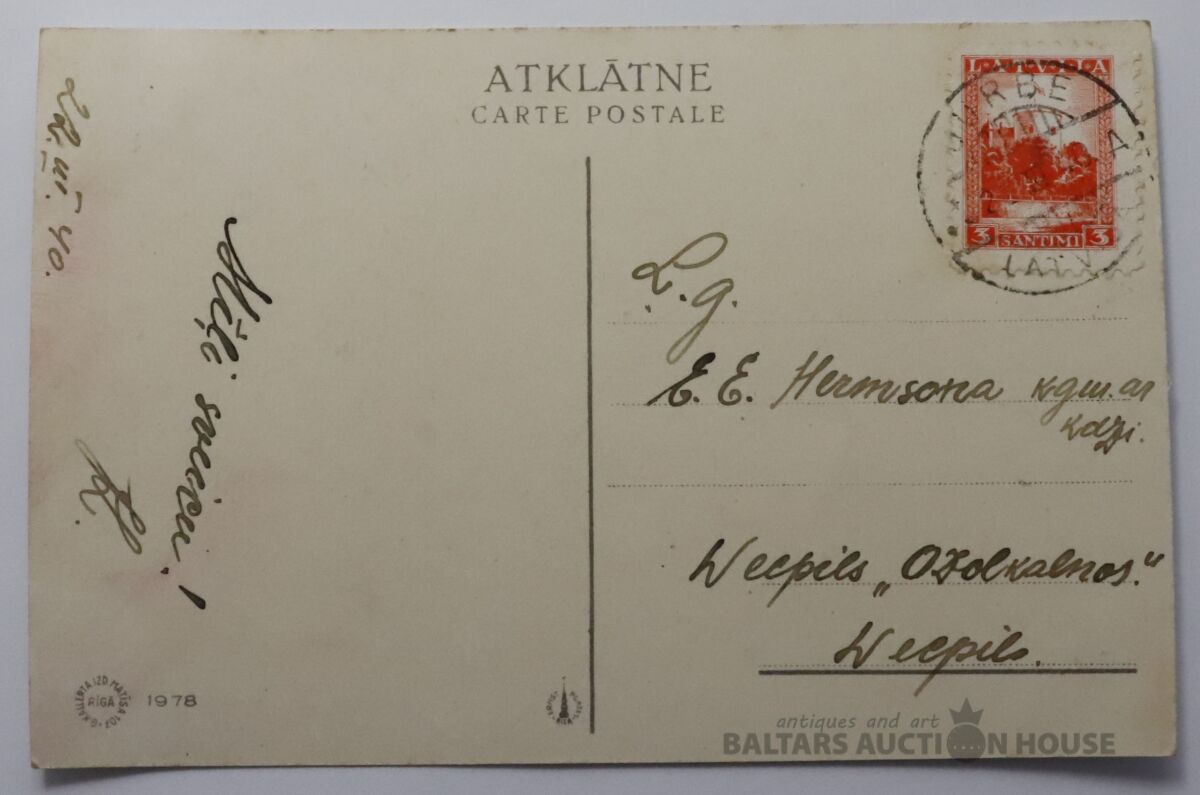 ATKLĀTNE
CARTE POSTALE
LATVIJA
3 SANTIMI 3
LATV
22.VI.40.
Mīļi sveicu!
L. g.
E. E. Hermsona kgm. ar
kdzi.
Wecpils „Ozolkalnos.“
Wecpils.
RĪGĀ
1978
antiques and art
BALTARS AUCTION HOUSE